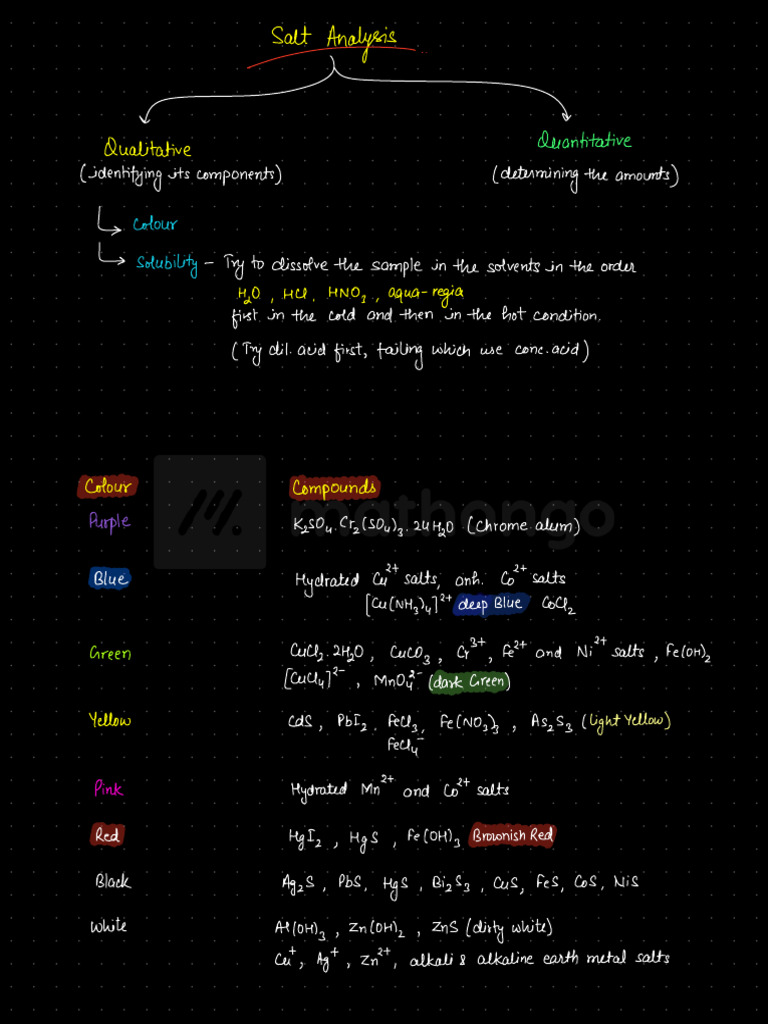 Salt Analysis
Qualitative
Quantitative
(identifying its components)
(determining the amounts)
Colour
Solubility – Try to dissolve the sample in the solvents in the order
H₂O, HCl, HNO₃, aqua-regia
first in the cold and then in the hot condition.
(Try dil. acid first, failing which use conc. acid)
mathongo
Colour Compounds
Purple K₂SO₄.Cr₂(SO₄)₃.24H₂O (chrome alum)
Blue Hydrated Cu²⁺ salts, anh. Co²⁺ salts
[Cu(NH₃)₄]²⁺ deep Blue CoCl₂
Green CuCl₂.2H₂O, CuCO₃, Cr³⁺, Fe²⁺ and Ni²⁺ salts, Fe(OH)₂
[CuCl₄]²⁻, MnO₄²⁻ (dark Green)
Yellow CdS, PbI₂, FeCl₃, Fe(NO₃)₃, As₂S₃ (light Yellow)
FeCl₄⁻
Pink Hydrated Mn²⁺ and Co²⁺ salts
Red HgI₂, HgS, Fe(OH)₃ Brownish Red
Black Ag₂S, PbS, HgS, Bi₂S₃, CuS, FeS, CoS, NiS
White Al(OH)₃, Zn(OH)₂, ZnS (dirty white)
Cu⁺, Ag⁺, Zn²⁺, alkali & alkaline earth metal salts